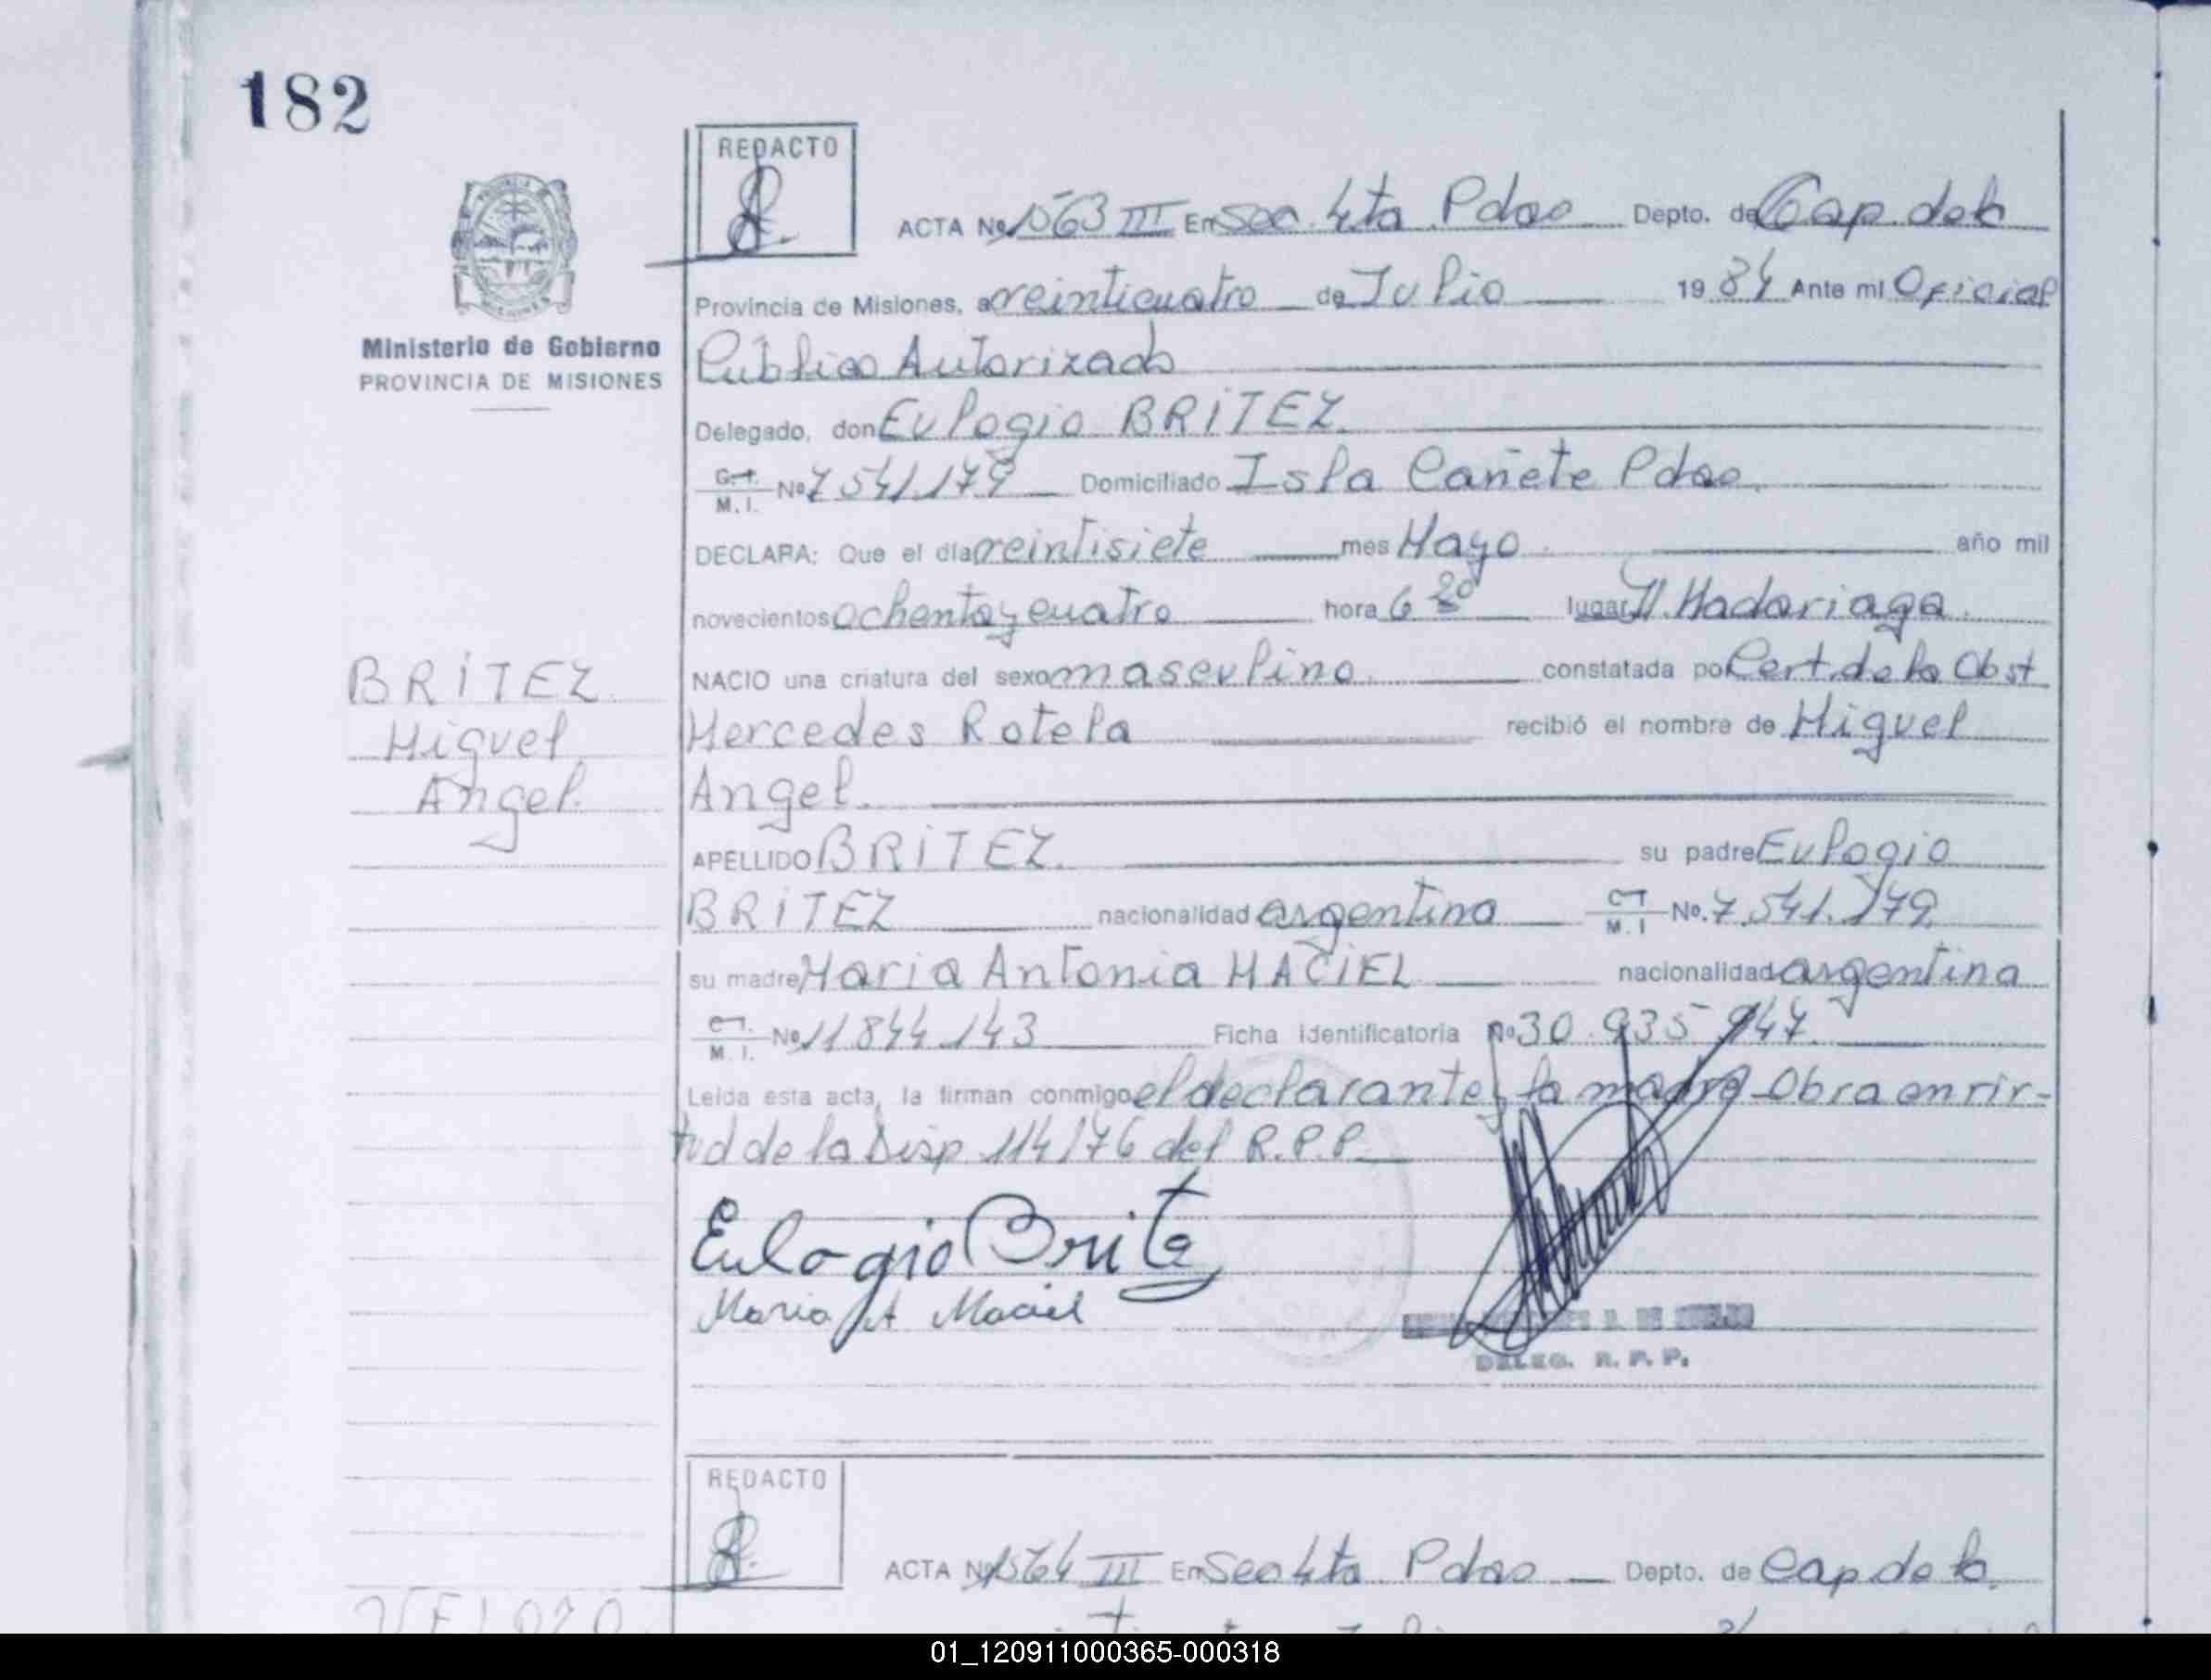 182
REDACTO
ACTA Nº 1563 III En Sec. 4ta Pdas Depto. de Cap. de la
Provincia de Misiones, a veinticuatro de Julio 1984 Ante mi Oficial
Ministerio de Gobierno
PROVINCIA DE MISIONES
Público Autorizado
Delegado, don Eulogio BRITEZ.
C.I. M.I. Nº 7.541.179 Domiciliado Isla Cañete Pdas.
DECLARA: Que el día veintisiete mes Mayo. año mil
novecientos ochenta y cuatro hora 6 20 lugar H. Madariaga.
NACIO una criatura del sexo masculino. constatada por Cert. de la Obst
Mercedes Rotela recibió el nombre de Miguel
Angel.
BRITEZ.
Miguel
Angel.
APELLIDO BRITEZ. su padre Eulogio
BRITEZ nacionalidad argentina C.I. M.I Nº. 7.541.179
su madre Maria Antonia MACIEL nacionalidad argentina
C.I. M.I. Nº 11.844.143 Ficha identificatoria Nº 30.935.947.
Leída esta acta, la firman conmigo el declarante y la madre - Obra en vir-
tud de la Disp. 114/76 del R.P.P.
Eulogio Britez
Maria A Maciel
DELEG. R. P. P.
REDACTO
ACTA Nº 1564 III En Sec 4ta Pdas Depto. de Cap de la.
01_120911000365-000318